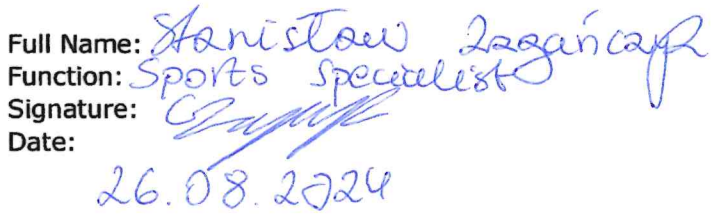 Full Name: Stanisław Zagańczyk
Function: Sports Specialist
Signature:
Date:
26.08.2024